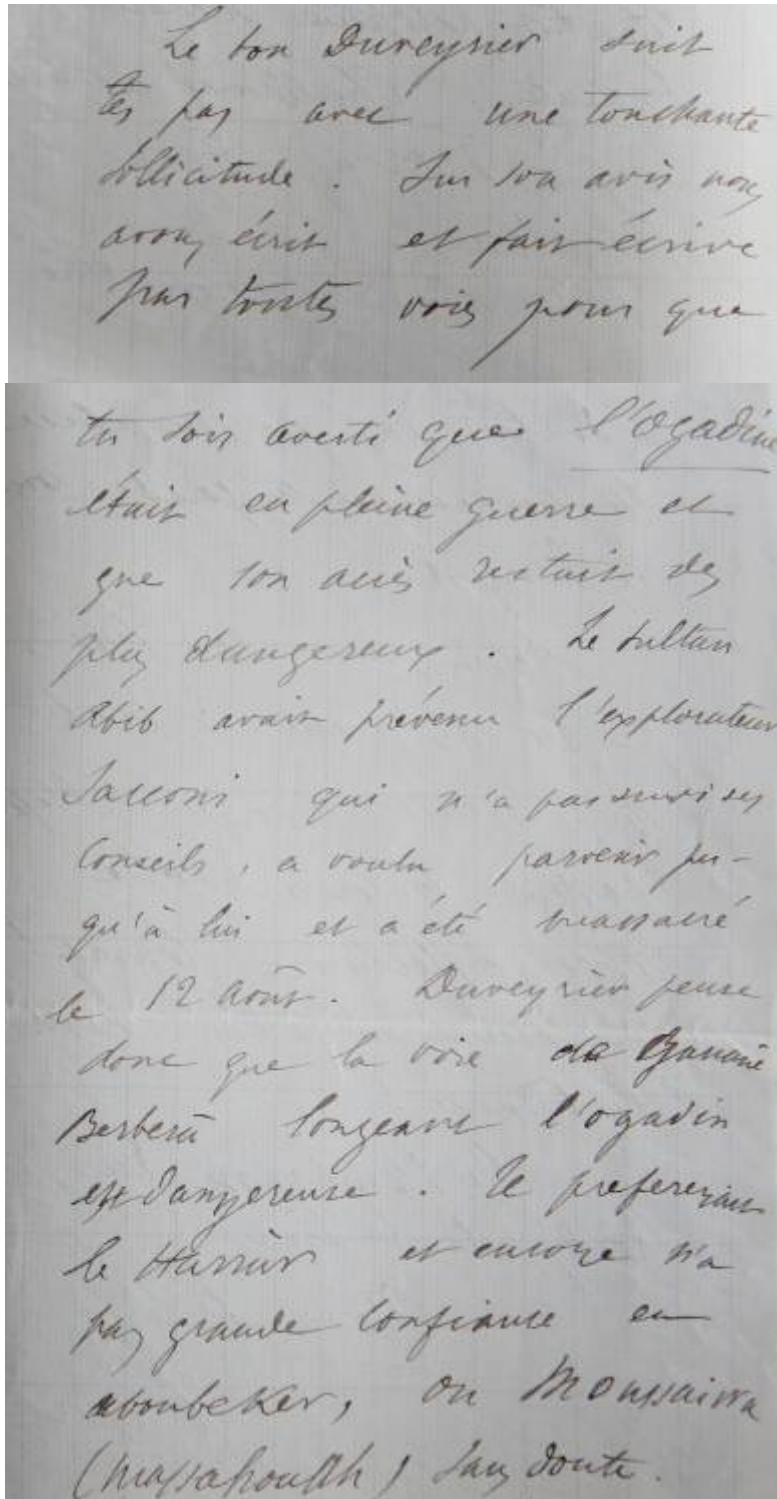 Le bon Duveyrier suit
tes pas avec une touchante
sollicitude. Sur son avis nous
avons écrit et fait écrire
par toutes voies pour que
tu sois averti que l'Ogadine
était en pleine guerre et
que son accès restait des
plus dangereux. Le sultan
Abib avait prévenu l'explorateur
Sacconi qui n'a pas suivi ses
conseils, a voulu parvenir jus-
qu'à lui et a été massacré
le 12 août. Duveyrier pense
donc que la voie de
Berbera longeant l'ogadin
est dangereuse. Il prefererait
le Harrar et encore n'a
pas grande confiance en
aboubeker, ou
sans doute.